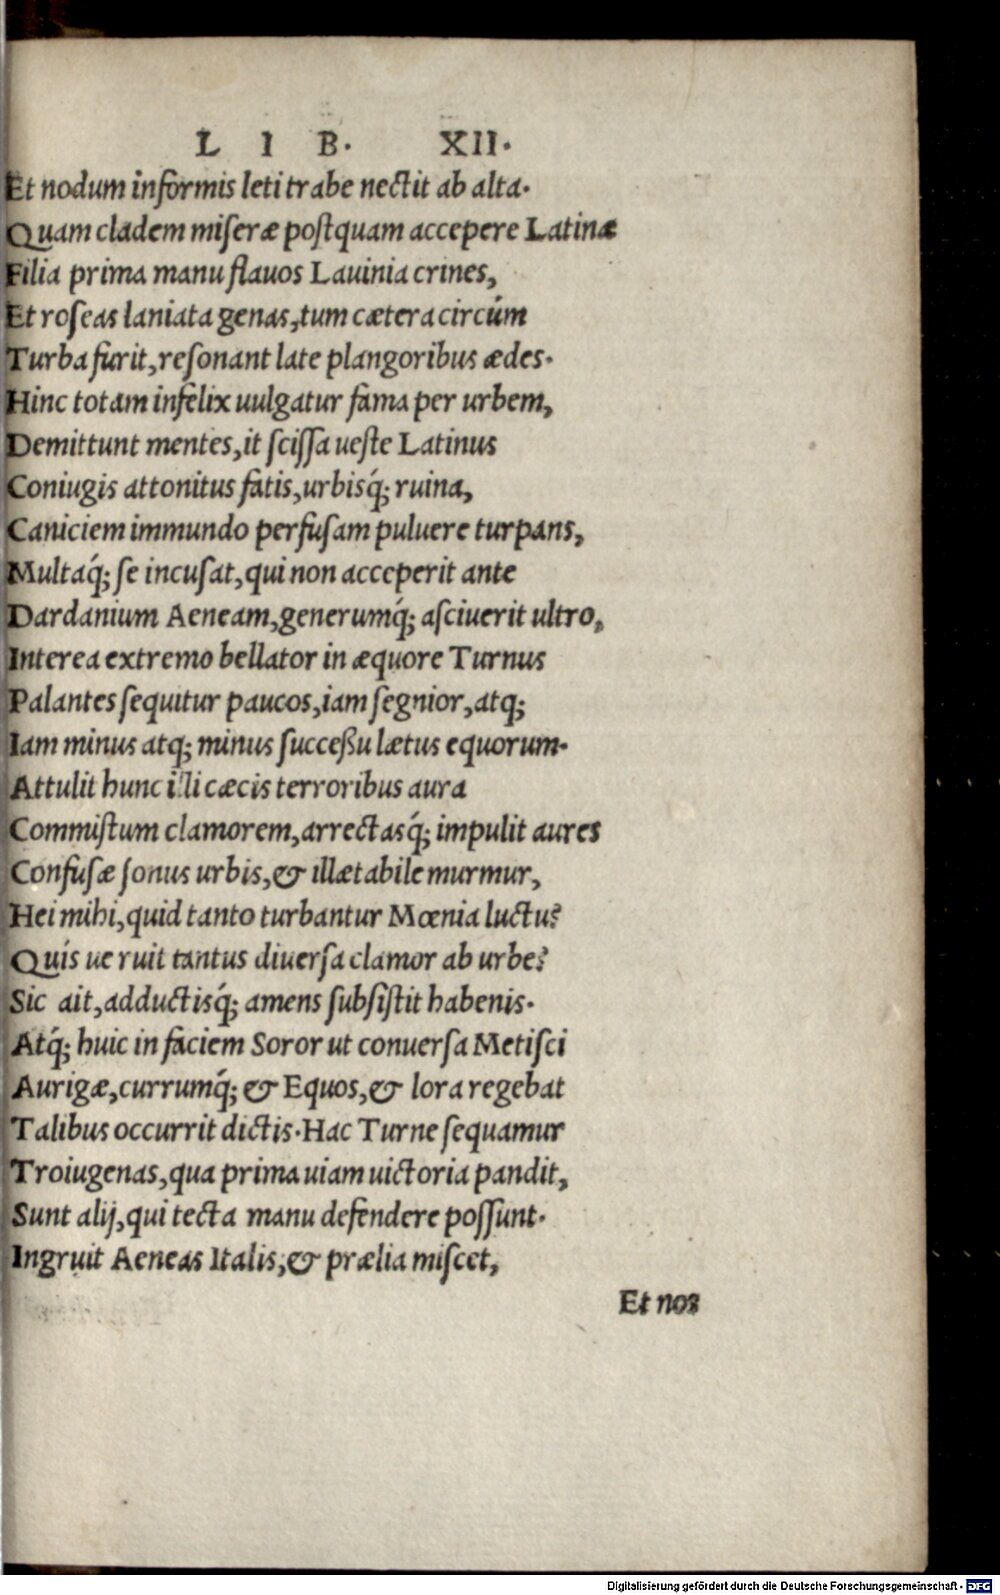 L I B. XII.
Et nodum informis leti trabe nectit ab alta.
Quam cladem miseræ postquam accepere Latinæ
Filia prima manu flauos Lauinia crines,
Et roseas laniata genas, tum cætera circúm
Turba furit, resonant late plangoribus ædes.
Hinc totam infelix uulgatur fama per urbem,
Demittunt mentes, it scissa ueste Latinus
Coniugis attonitus fatis, urbisq́; ruina,
Caniciem immundo perfusam puluere turpans,
Multaq́; se incusat, qui non acceperit ante
Dardanium Aeneam, generumq́; asciuerit ultro,
Interea extremo bellator in æquore Turnus
Palantes sequitur paucos, iam segnior, atq;
Iam minus atq; minus succeßu lætus equorum.
Attulit hunc illi cæcis terroribus aura
Commistum clamorem, arrectasq́; impulit aures
Confusæ sonus urbis, & illætabile murmur,
Hei mihi, quid tanto turbantur Mœnia luctu?
Quís ue ruit tantus diuersa clamor ab urbe?
Sic ait, adductisq́; amens subsistit habenis.
Atq́; huic in faciem Soror ut conuersa Metisci
Aurigæ, currumq́; & Equos, & lora regebat
Talibus occurrit dictis. Hac Turne sequamur
Troiugenas, qua prima uiam uictoria pandit,
Sunt alij, qui tecta manu defendere possunt.
Ingruit Aeneas Italis, & prælia miscet,
Et nos
Digitalisierung gefördert durch die Deutsche Forschungsgemeinschaft - DFG